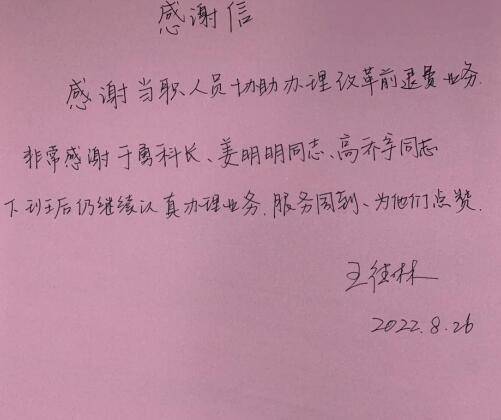 感谢信
感谢当职人员协助办理改革前退费业务.
非常感谢于勇科长、姜明明同志、高乔宇同志
下班后仍继续认真办理业务.服务周到、为他们点赞.
王德林
2022.8.26